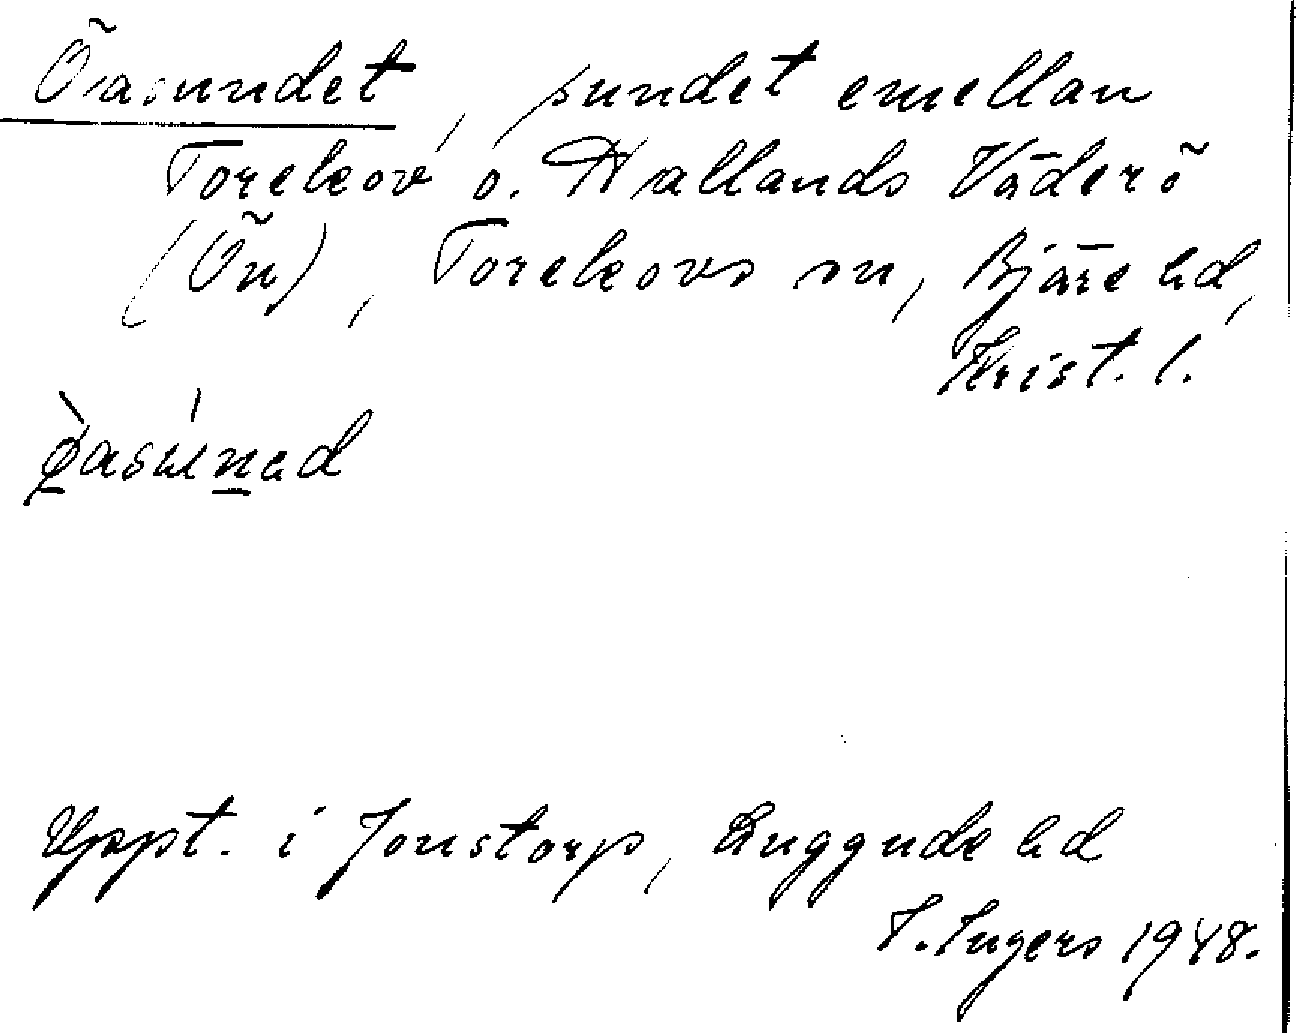 Öasundet, sundet emellan
Torekov o. Hallands Väderö
(Ön), Torekovs sn, Bjäre hd,
Krist. l.
Uppt. i Jonstorp, Luggude hd
I. Ingers 1948.